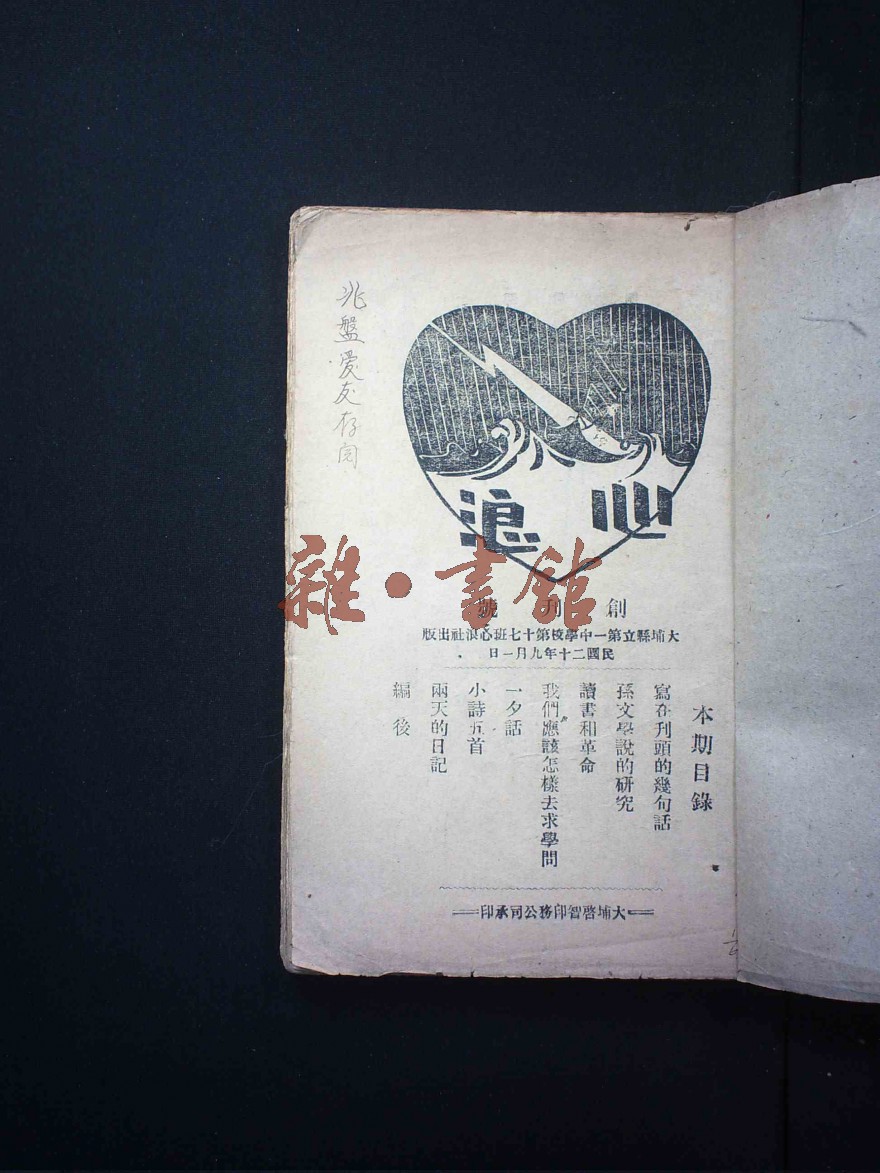 兆盤愛友存閱
心浪
創刊號
大埔縣立第一中學校第十七班心浪社出版
民國二十年九月一日
本期目錄
寫在刋頭的幾句話
孫文學說的研究
讀書和革命
我們應該怎樣去求學問
一夕話
小詩五首
兩天的日記
編後
大埔啓智印務公司承印
雜·書館